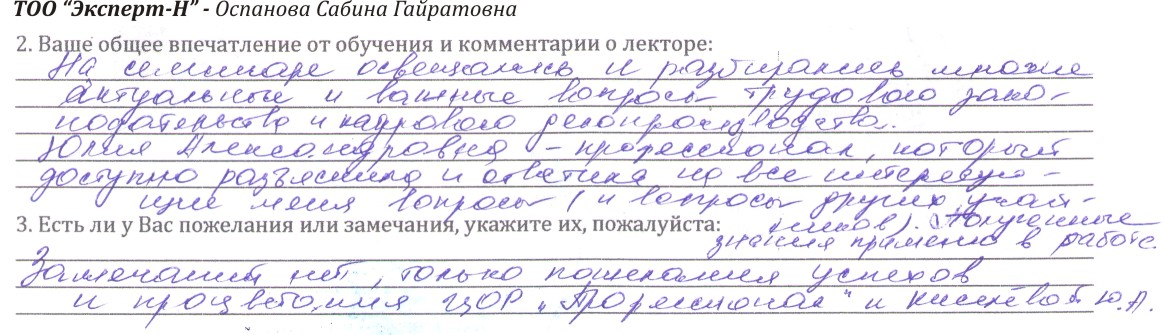 ТОО “Эксперт-Н” - Оспанова Сабина Гайратовна
2. Ваше общее впечатление от обучения и комментарии о лекторе:
На семинаре освещались и разбирались многие
актуальные и важные вопросы трудового зако-
нодательства и кадрового делопроизводства.
Юлия Александровна - профессионал, который
доступно разъяснила и ответила на все интересую-
щие меня вопросы (и вопросы других участ-
ников). Полученные
3. Есть ли у Вас пожелания или замечания, укажите их, пожалуйста:
знания применю в работе.
Замечаний нет, только пожелания успехов
и процветания ЦОР „Профессионал“ и Киселёвой Ю.А.